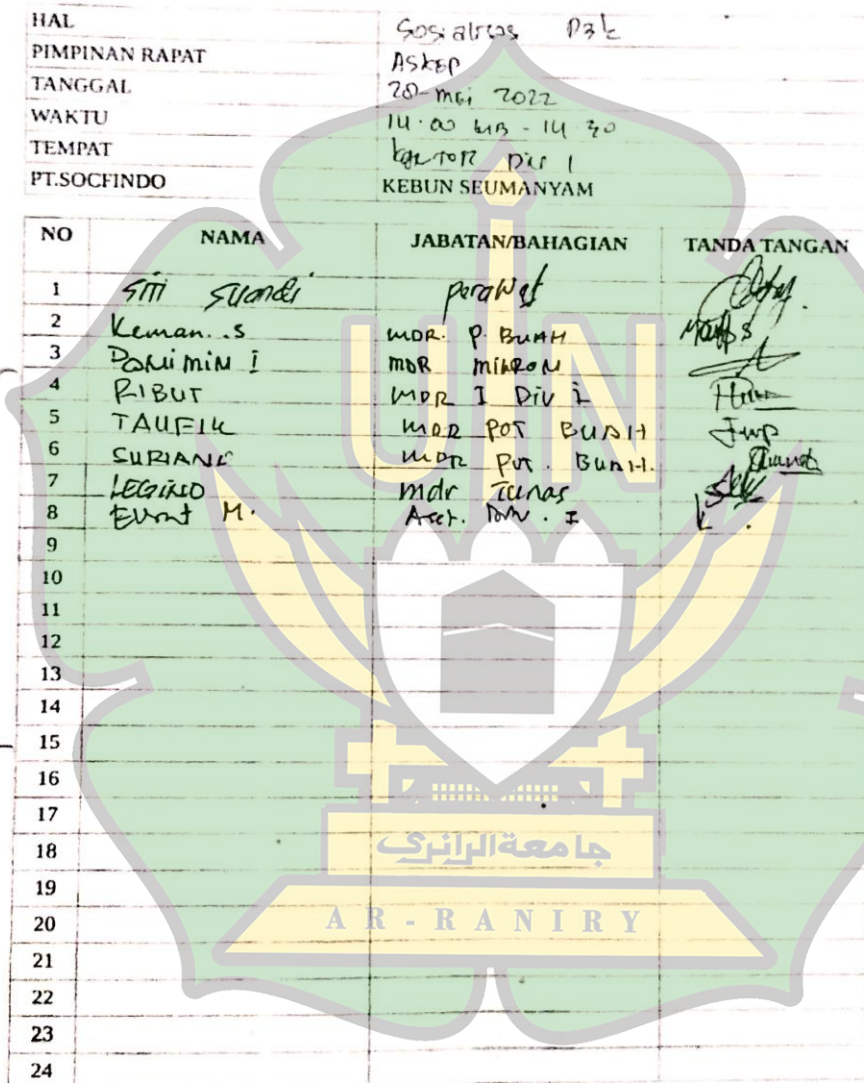 HAL Sosialisas P3k
PIMPINAN RAPAT ASKEP
TANGGAL 20-mei 2022
WAKTU 14.00 WIB - 14 30
TEMPAT kantor Div 1
PT.SOCFINDO KEBUN SEUMANYAM
NO NAMA JABATAN/BAHAGIAN TANDA TANGAN
1 Siti perawat
2 Keman..s MDR. P BUAH
3 MDR
4 RIBUT MDR I Div I
5 TAUFIK MDR POT BUAH
6 SURIANE MDR Pot. BUAH.
7 LEGINO mdr Tunas
8 M. I
9
10
11
12
13
14
15
16
17
18
19
20
21
22
23
24
UIN
جامعة الرانري
AR-RANIRY